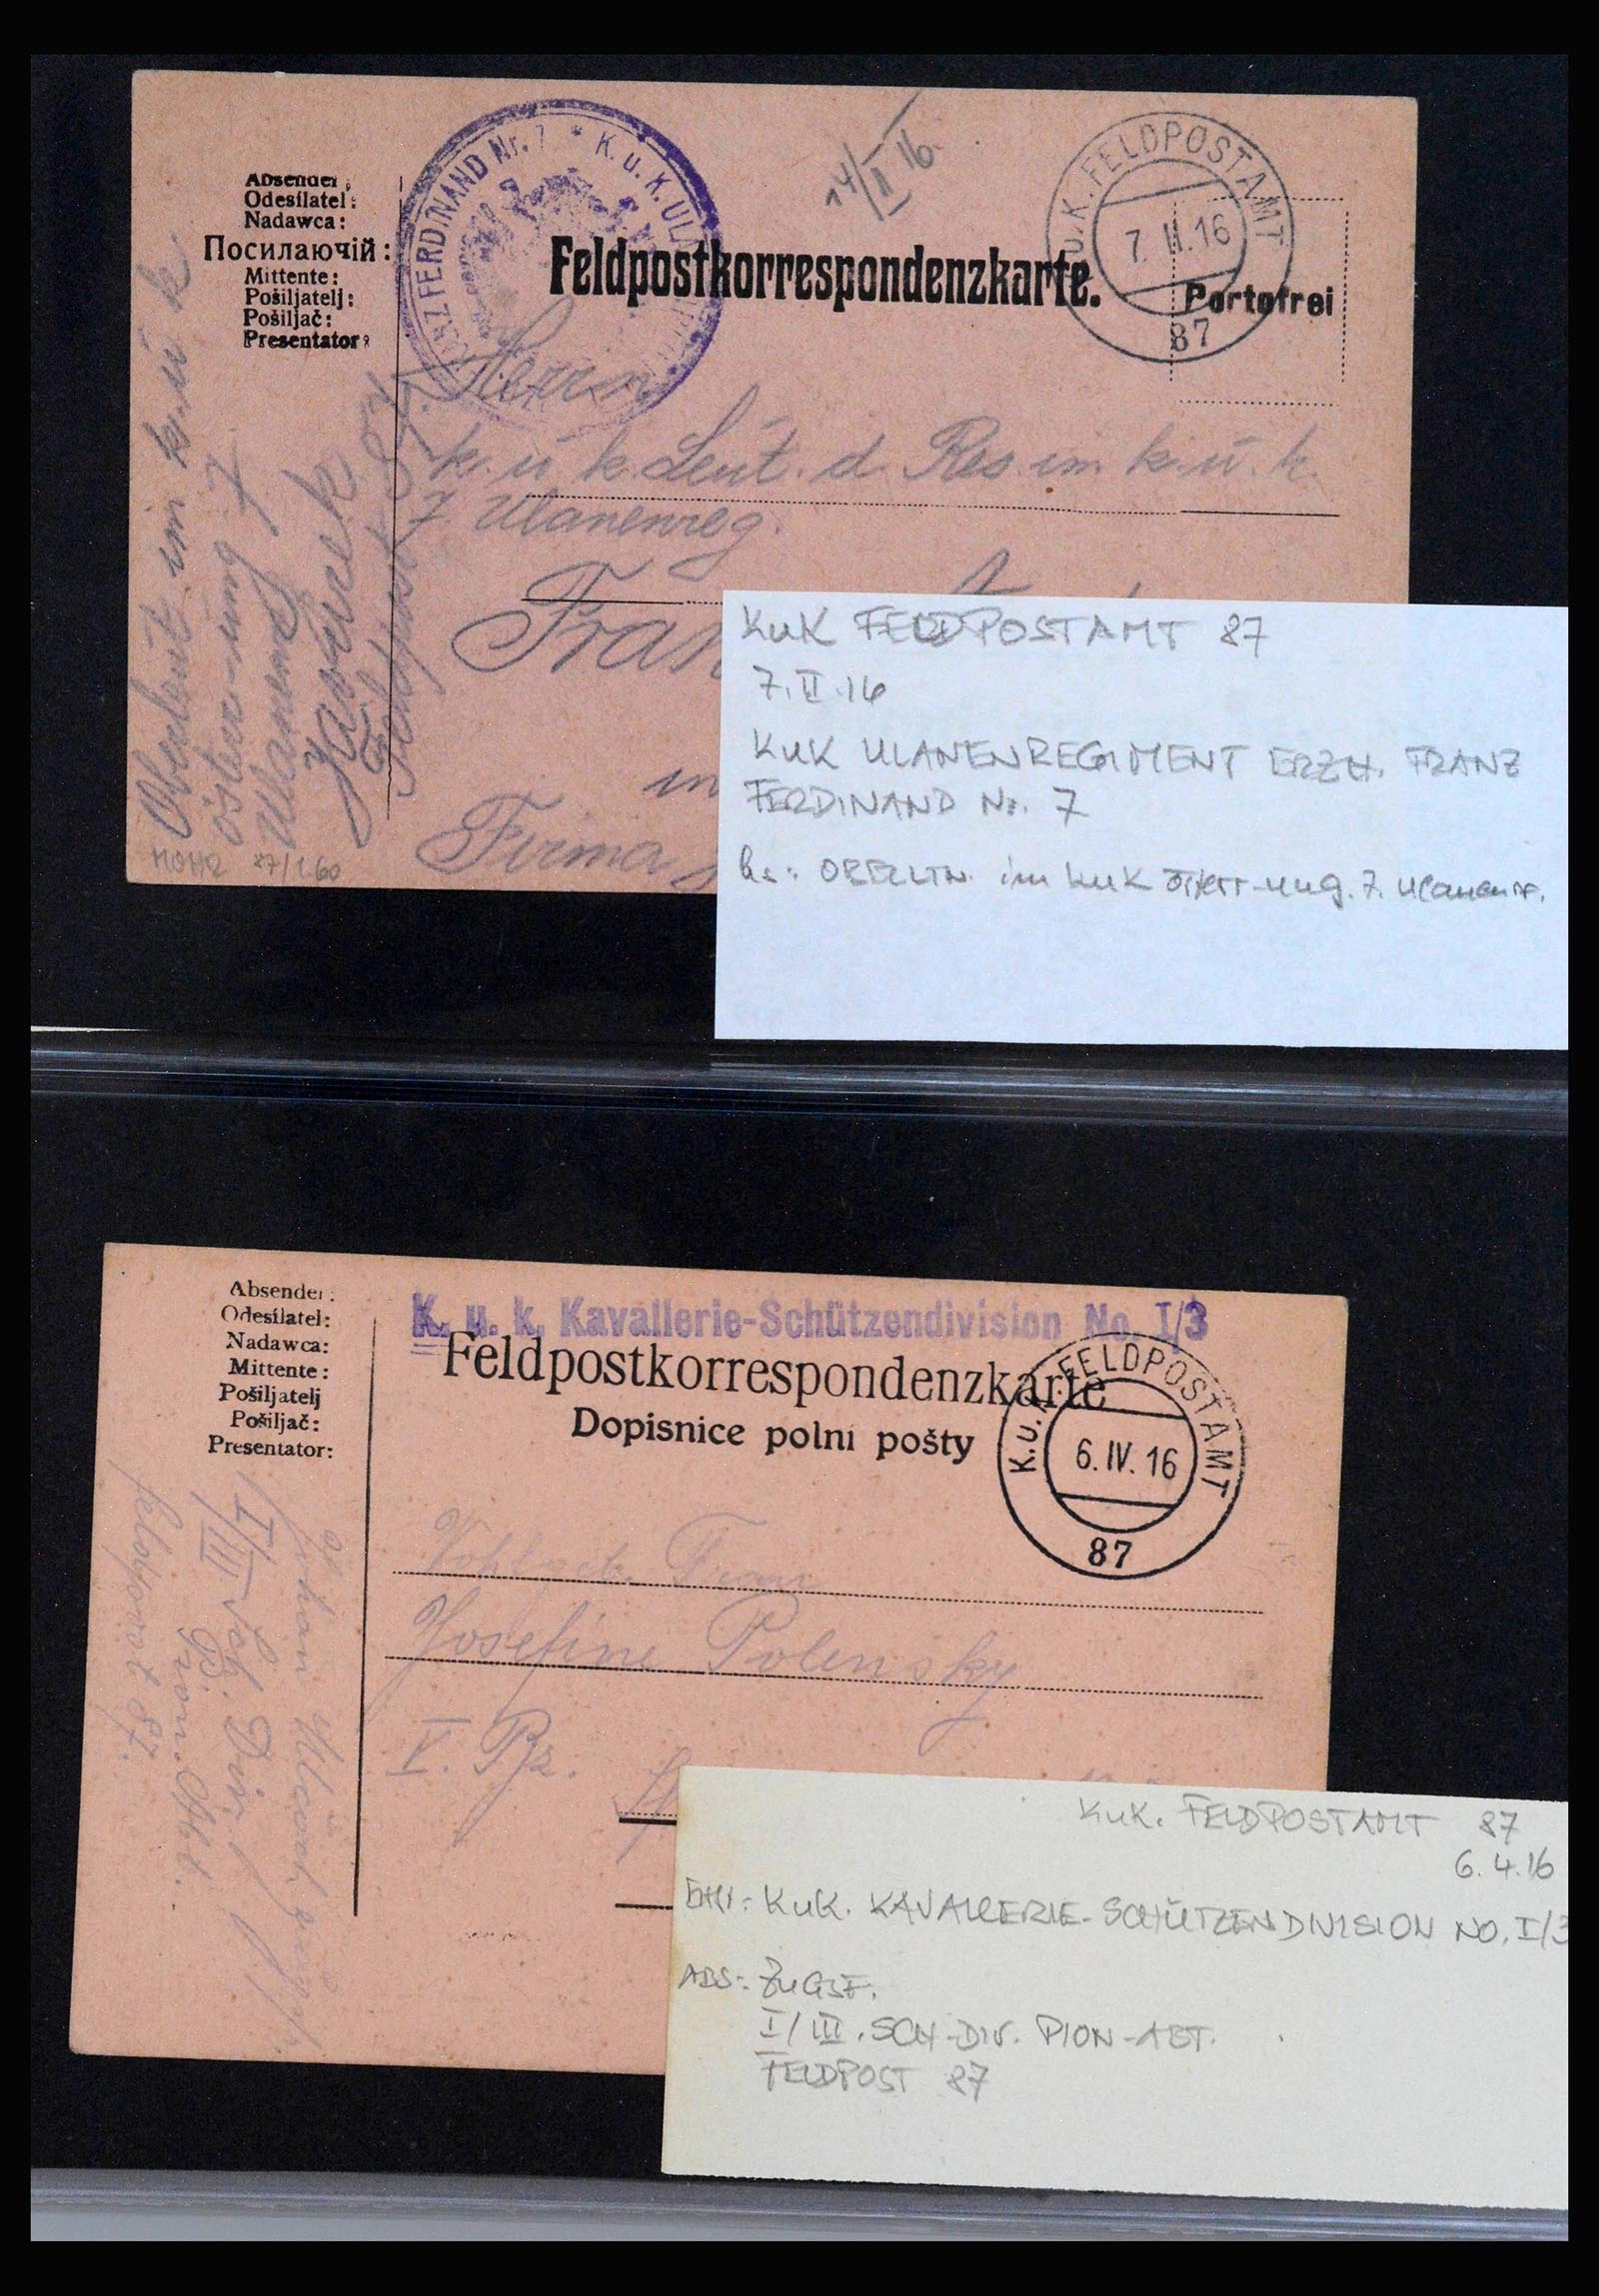 Absender:
Odesílatel:
Nadawca:
Посилаючій:
Mittente:
Pošiljatelj:
Pošiljač:
Presentator:
ERZ. FERDINAND Nr. 7 * K. u. K. UL
14/II 16.
K. u. K. FELDPOSTAMT
7. II. 16
87
Feldpostkorrespondenzkarte.
Portofrei
Herrn
k. u k. Leut. d. Res. im k. u. k.
7. Ulanenreg.
Fran
in
Firma
Oberleut im k. u k
österr-ung 7
Ulanenreg
MOHR 87/1 60
KuK FELDPOSTAMT 87
7. II. 16
KuK ULANENREGIMENT ERZH. FRANZ
FERDINAND Nr. 7
hs: OBERLTN. im KuK österr-ung. 7. Ulanenr.
Absender:
Odesílatel:
Nadawca:
Mittente:
Pošiljatelj
Pošiljač:
Presentator:
K. u. k. Kavallerie-Schützendivision No. I/3
Feldpostkorrespondenzkarte
Dopisnice polní pošty
K. u. K. FELDPOSTAMT
6. IV. 16
87
Frau
Josefine Polensky
V. Bz.
I/III Sch. Div
Pion. Abt.
Feldpost 87.
KuK. FELDPOSTAMT 87
6. 4. 16
KuK. KAVALLERIE-SCHÜTZENDIVISION NO. I/3
ABS: ZUGSF.
I/III. SCH-DIV. PION-ABT.
FELDPOST 87